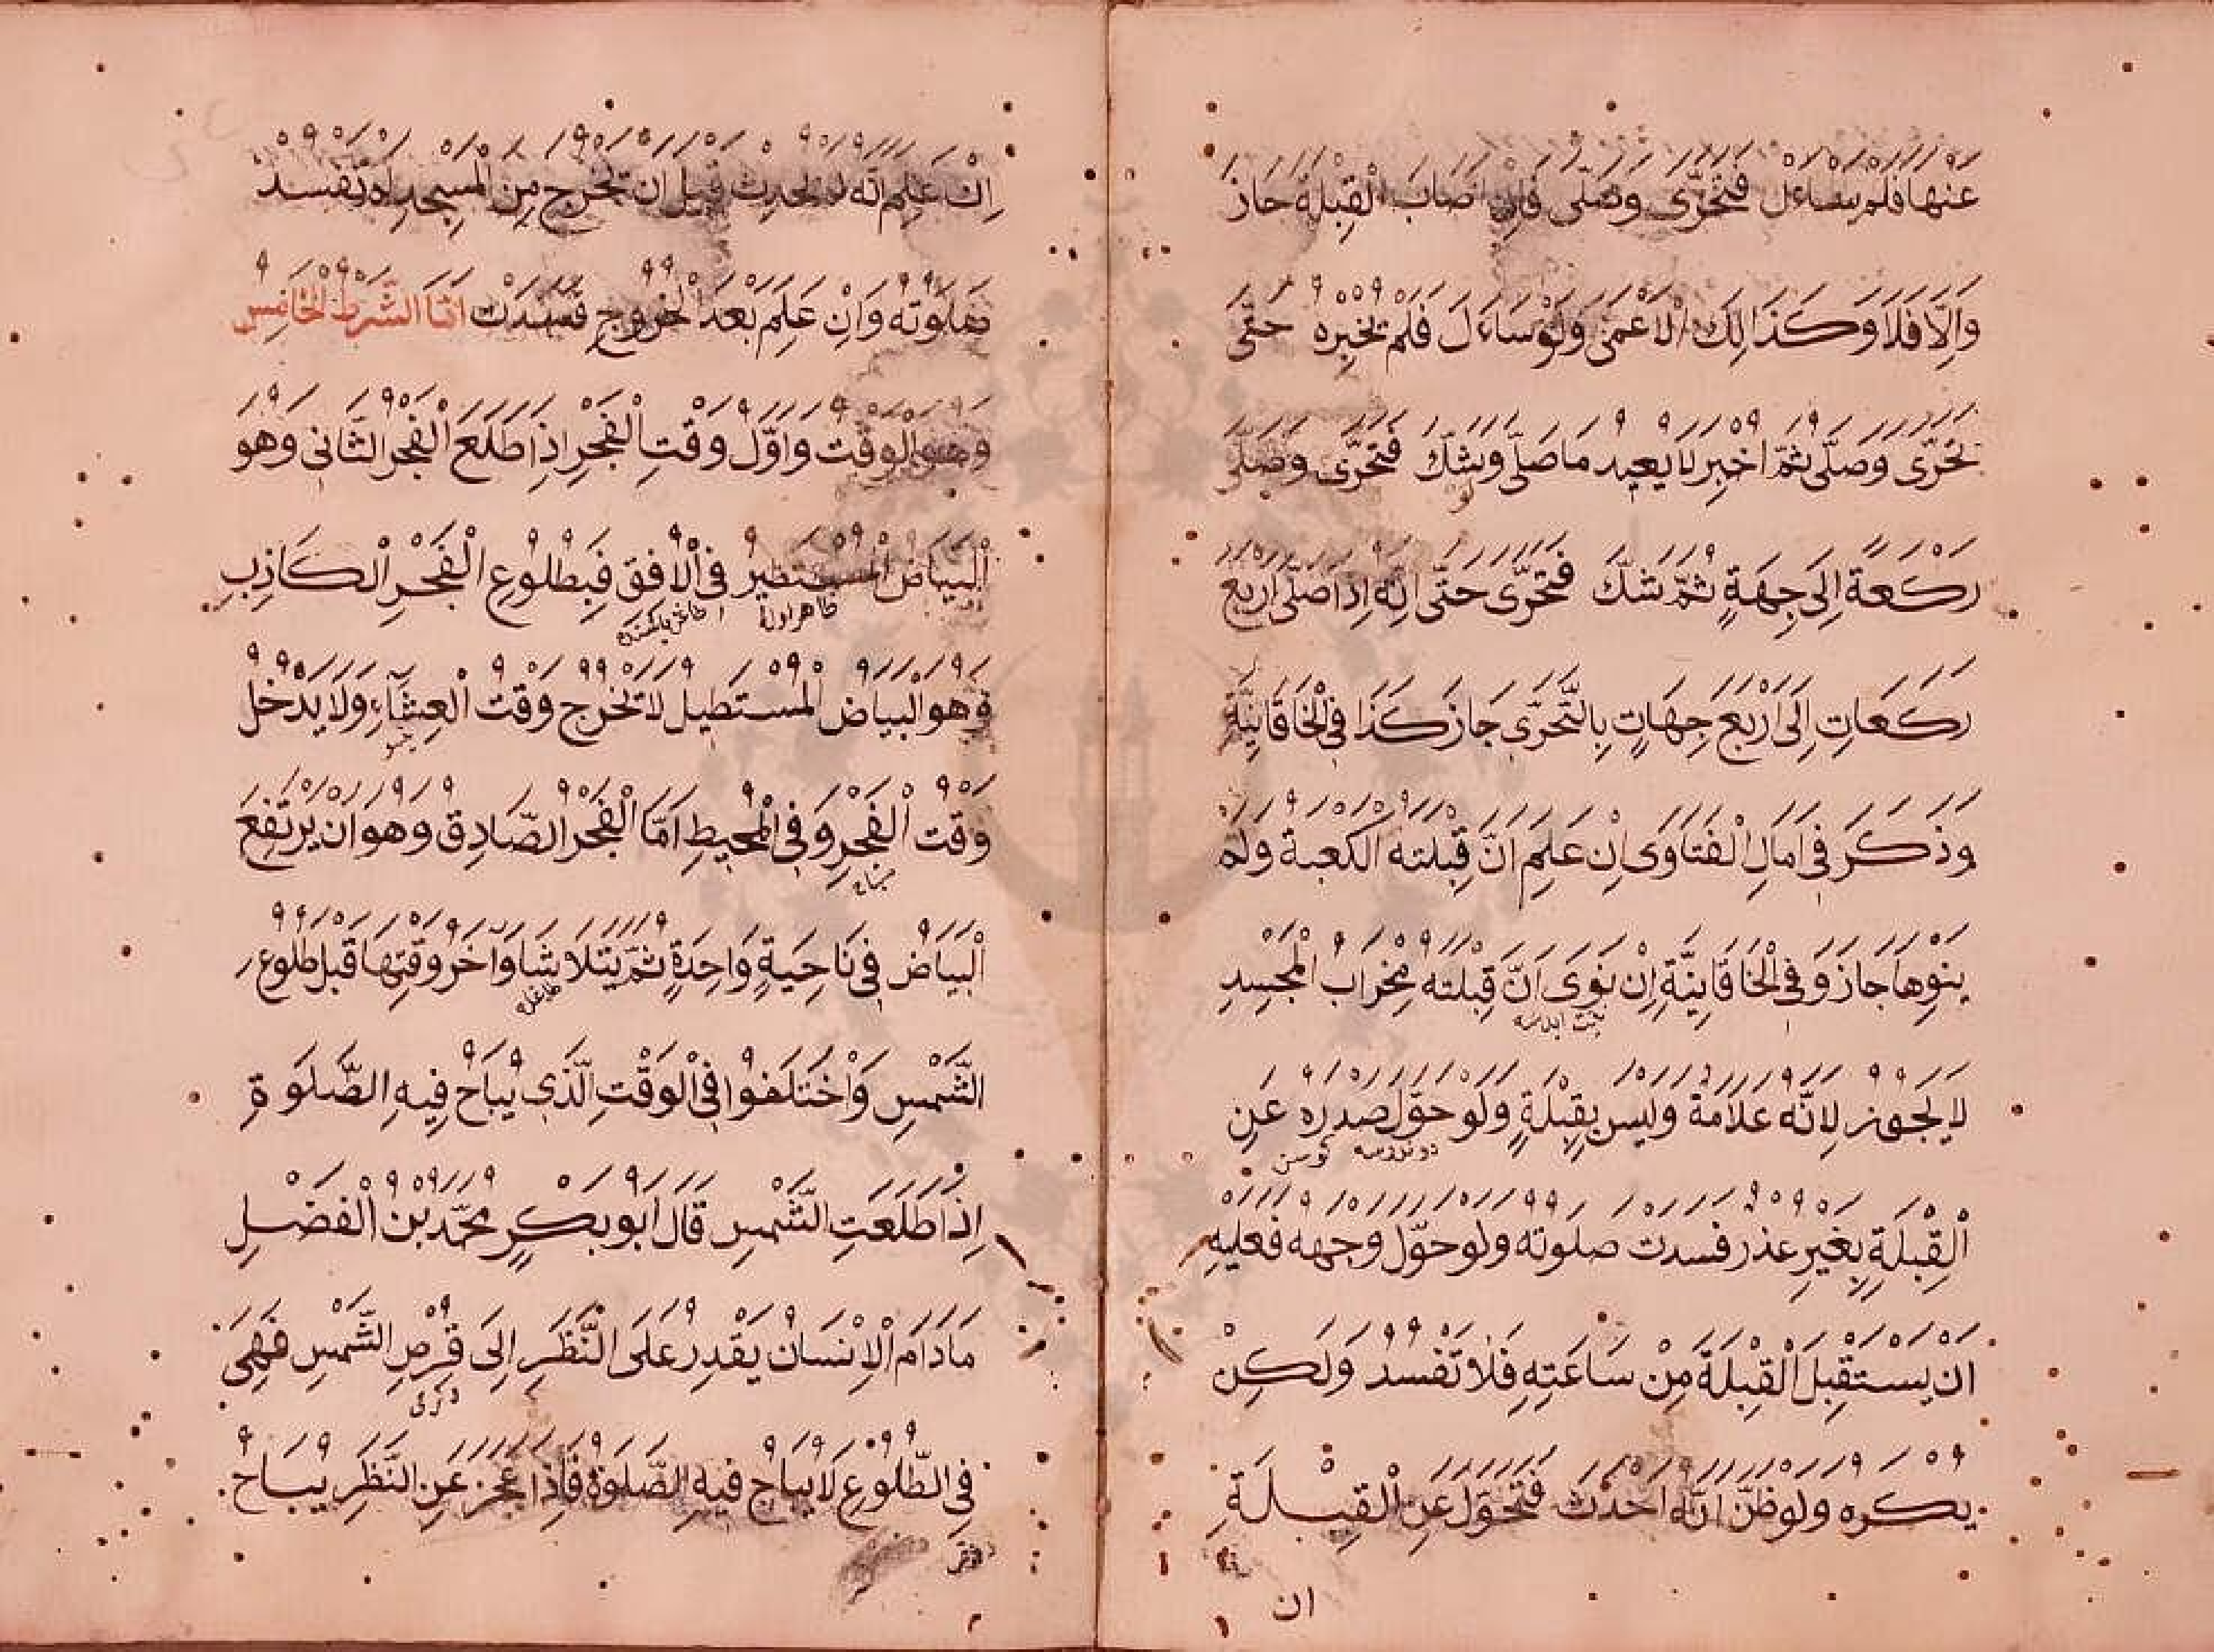 عنها فلم يساءل فتحرّى وصلّى فان اصاب القبلة جاز
والّا فلا وكذالك الاعمى ولو ساءل فلم يخبره حتّى
تحرّى وصلّى ثمّ اخبر لا يعيد ما صلّى وشكّ فتحرّى وصلّى
ركعة الى جهة ثمّ شكّ فتحرّى حتّى انّه اذا صلّى اربع
ركعات الى اربع جهات بالتّحرّى جاز كذا فى الخاقانيّة
وذكر فى امال الفتاوى ان علم انّ قبلته الكعبة ولم
ينوها جاز وفى الخاقانيّة ان نوى انّ قبلته محراب المجسد
لا يجوز لانّه علامة وليس بقبلة ولو حوّل صدره عن
القبلة بغير عذر فسدت صلوته ولو حوّل وجهه فعليه
ان يستقبل القبلة من ساعته فلا تفسد ولكن
يكره ولو ظنّ انّه احدث فتحوّل عن القبلة
ان
ان علم انّه لم يحدث قبل ان يخرج من المسجد لم تفسد
صلوته وان علم بعد الخروج فسدت امّا الشّرط الخامس
وهو الوقت واوّل وقت الفجر اذا طلع الفجر الثّانى وهو
البياض المستطير فى الافق فبطلوع الفجر الكاذب
وهو البياض المستطيل لا تخرج وقت العشآء ولا يدخل
وقت الفجر وفى المحيط امّا الفجر الصّادق وهو ان يرتفع
البياض فى ناحية واحدة ثمّ يتلاشا وآخر وقتها قبل طلوع
الشّمس واختلفوا فى الوقت الّذى يباح فيه الصّلوة
اذا طلعت الشّمس قال ابو بكر محمّد بن الفضل
ما دام الانسان يقدر على النّظر الى قرص الشّمس فهى
فى الطّلوع لا يباح فيه الصّلوة فاذا عجز عن النّظر يباح